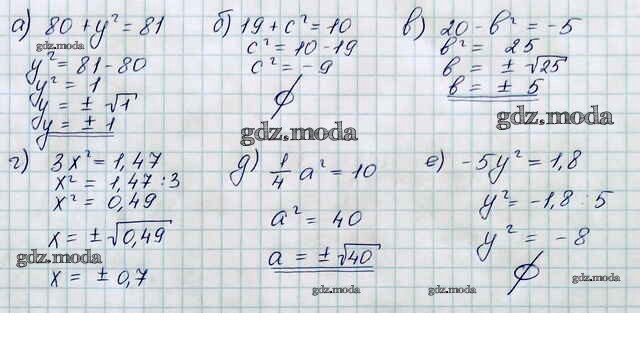 а) 80 + y² = 81
gdz.moda
y² = 81 - 80
y² = 1
y = ± √1
y = ± 1
б) 19 + c² = 10
c² = 10 - 19
c² = - 9
∅
gdz.moda
в) 20 - в² = - 5
в² = 25
в = ± √25
в = ± 5
gdz.moda
г) 3x² = 1,47
x² = 1,47 : 3
x² = 0,49
x = ± √0,49
gdz.moda
x = ± 0,7
д) 1/4 a² = 10
a² = 40
a = ± √40
gdz.moda
е) - 5y² = 1,8
y² = - 1,8 : 5
y² = - 8
∅
gdz.moda
gdz.moda